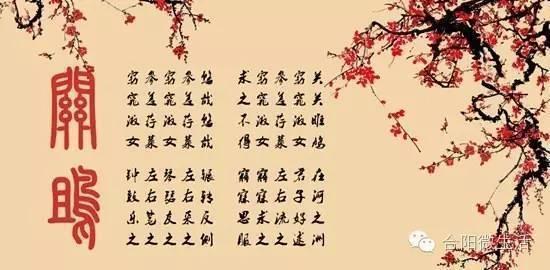 關鴡
关关雎鸠 在河之洲
窈窕淑女 君子好逑
参差荇菜 左右流之
窈窕淑女 寤寐求之
求之不得 寤寐思服
悠哉悠哉 辗转反侧
参差荇菜 左右采之
窈窕淑女 琴瑟友之
参差荇菜 左右芼之
窈窕淑女 钟鼓乐之
合阳微生活